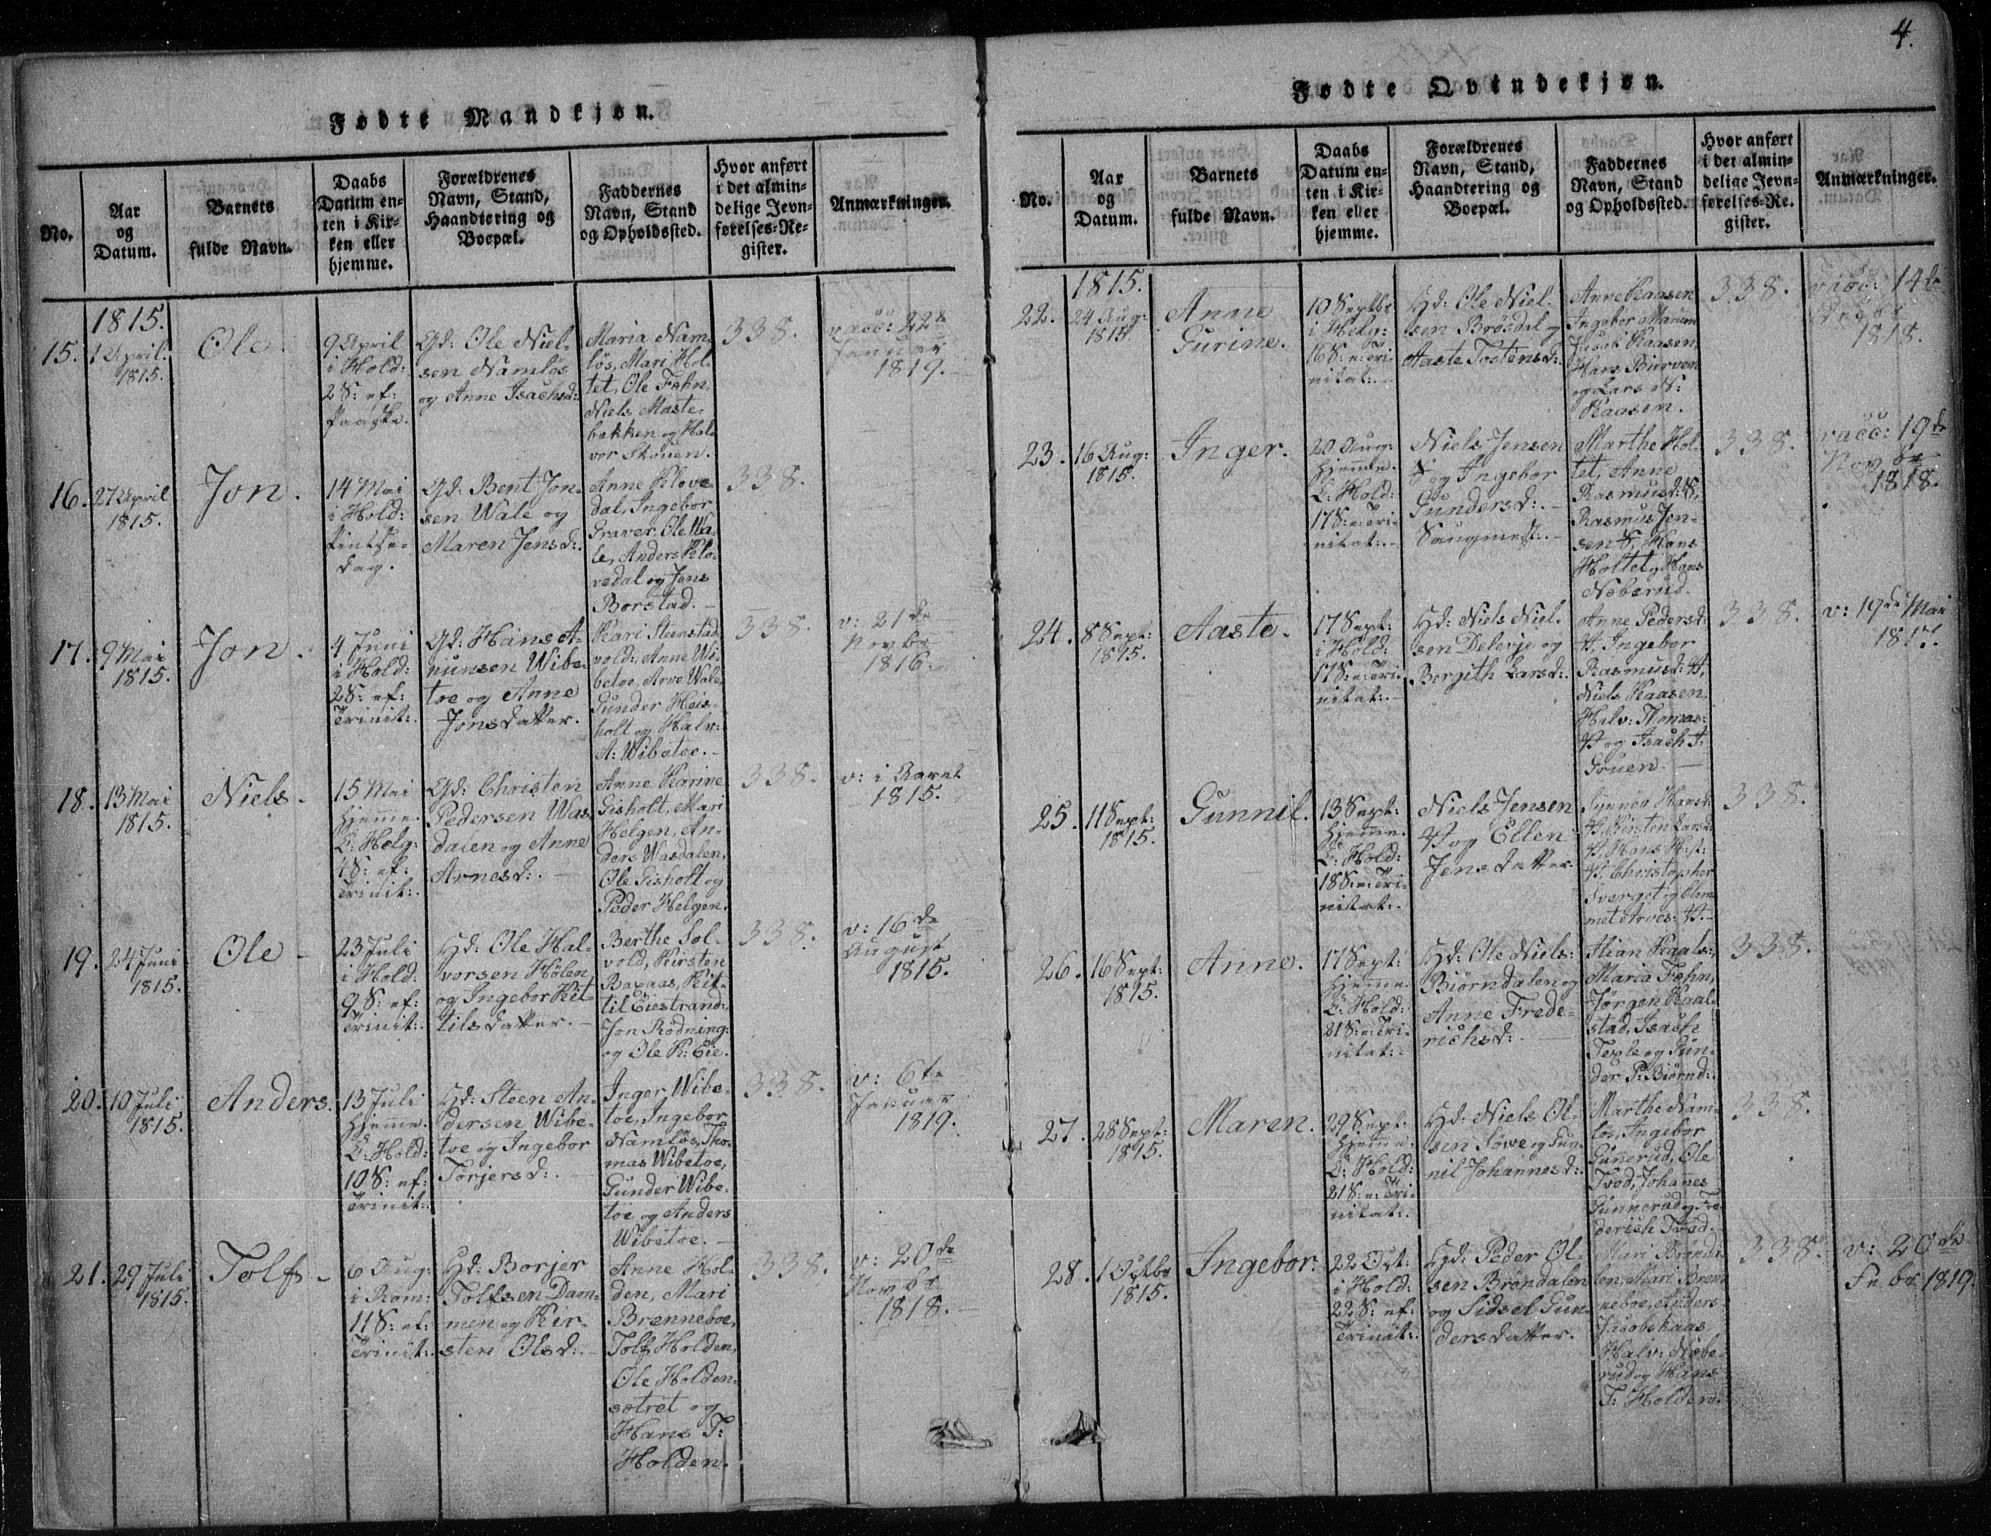 4.
Fødte Mandkjøn.
No.
Aar
og
Datum.
Barnets
fulde Navn.
Daabs
Datum en-
ten i Kir-
ken eller
hjemme.
Forældrenes
Navn, Stand,
Haandtering og
Boepæl.
Faddernes
Navn, Stand
og Opholdssted.
Hvor anført
i det almin-
delige Jevn-
førelses-Re-
gister.
Anmærkninger.
1815.
15.
1 April
1815.
Ole
9 April
i Hold:
2 S: ef:
Paaske.
Gd: Ole Niel-
sen Namløs
og Anne Isachsd:
Maria Nam-
løs, Mari Hol-
tet, Ole Fehn,
Niels Maste-
bakken og Hal-
vor Skouen.
338.
vacc: 22de
Januar
1819.
16.
27 April
1815.
Jon.
14 Mai
i Hold:
Pintse-
dag.
Gd: Bent Jon-
sen Wale og
Maren Jensd:
Anne Klove-
dal, Ingebor
Graver, Ole Wa-
le, Anders Klo-
vedal og Jens
Borstad.
338.
17.
9 Mai
1815.
Jon.
4 Juni
i Hold:
2 S: ef:
Trinit:
Gd: Hans A-
nunsen Wibe-
toe og Anne
Jonsdatter.
Kari Steenstad-
vold, Anne Wi-
betoe, Arve Wale,
Gunder Heis-
holt og Halv:
A: Wibetoe.
338.
v: 21de
Novbr
1816.
18.
13 Mai
1815.
Niels
15 Mai
hjemme.
C: Helg:
4 S: ef:
Trinit:
Gd: Christen
Pedersen Was-
dalen og Anne
Arnesd:
Anne Karine
Gisholt, Mari
Helgen, An-
ders Wasdalen,
Ole Gisholt og
Peder Helgen.
338.
v: i Aaret
1815.
19.
24 Juni
1815.
Ole
23 Juli
i Hold:
9 S: ef:
Trinit:
Hd: Ole Hal-
vorsen Hølen
og Ingebor Kit-
tilsdatter.
Berthe Sol-
vold, Kirsten
Baxaas, Kit-
til Eiestrand:,
Jon Rødning:
og Ole K: Eie.
338.
v: 16de
August
1815.
20.
10 Juli
1815.
Anders.
13 Juli
hjemme.
C: Hold:
10 S: ef:
Trinit:
Hd: Steen An-
dersen Wibe-
toe og Ingebor
Torjersd:
Inger Wibe-
toe, Ingebor
Namløs, Tho-
mas Wibetoe,
Gunder Wibe-
toe og Anders
Wibetoe.
338.
v: 6te
Januar
1819.
21.
29 Juli
1815.
Tolf
6 Aug:
i Rom:
11 S: ef:
Trinit:
Hd: Borjer
Tolfsen Dam-
men og Kir-
sten Olsd:
Anne Hol-
den, Mari
Brenneboe,
Tolf Holden,
Ole Holden-
sætret og
Hans T:
Holden.
338.
v: 20de
Novbr
1818.
Fødte Qvindekjøn.
No.
Aar
og
Datum.
Barnets
fulde Navn.
Daabs
Datum en-
ten i Kir-
ken eller
hjemme.
Forældrenes
Navn, Stand,
Haandtering og
Boepæl.
Faddernes
Navn, Stand
og Opholdssted.
Hvor anført
i det almin-
delige Jevn-
førelses-Re-
gister.
Anmærkninger.
1815.
22.
24 Aug:
1815.
Anne
Gurine.
10 Septbr
i Helg:
16 S: e: Tri-
nitat:
Hd: Ole Niel-
sen Brøsdal og
Aaste Tostensd:
Anne Kaasen
Ingebor
Kaasen,
Hans
og Lars N:
Kaasen.
338.
vacc: 14de
1818.
23.
16 Aug:
1815.
Inger.
20 Aug:
hjemme.
C: Hold:
17 S: e: Tri-
nitat:
Niels Jensen
og Ingebor
Gundersd:
Marthe Hol-
tet, Anne
Rasmusd: S,
Rasmus Jen-
sen S, Hans
Holtet og Hans
Neberud.
338.
vacc: 19de
Novbr
1818.
24.
8 Sept:
1815.
Aaste
17 Sept:
i Hold:
17 S: e: Tri-
nitat:
Hd: Niels Niel-
sen Deleeje og
Bergith Larsd:
Anne Pedersd:
H, Ingebor
Rasmusd: H,
Niels Kaasen,
Halv: Thomas:
H og Isach T:
Gruen.
338.
v: 19de Mai
1817.
25.
11 Sept:
1815.
Gunnil.
13 Sept:
hjemme.
C: Hold:
18 S: e: Tri-
nitat:
Niels Jensen
H og Ellen
Jensdatter.
Synnøv Hansd:
H, Kirsten Larsd:
H, Hans
H, Christopher
Sverget og Clem-
met Arves: H.
338.
26.
16 Sept:
1815.
Anne.
17 Sept:
hjemme.
C: Hold:
21 S: e: Tri-
nitat:
Hd: Ole Niels:
Biørndalen og
Anne Frede-
richsd:
Stian Kaals:,
Maria Fehn,
Jørgen Kaal-
stad, Isach
Texle og Gun-
der P: Biørnd:
338.
27.
28 Sept:
1815.
Maren.
29 Sept:
hjemme.
C: Hold:
21 S: e: Tri-
nitat:
Hd: Niels Ol-
sen Løwe og Gun-
nil Johannesd:
Marthe Nam-
løs, Ingebor
Gunnerud, Ole
Tvod, Johanes
Gunnerud og Fre-
derich Tvod.
338.
28.
1 Octbr
1815.
Ingebor:
22 Oct:
i Hold:
22 S: ef:
Trinit:
Hd: Peder Ol-
sen Brøndalen
og Sidsel Gun-
dersdatter.
Mari Brønda-
len, Mari Bren-
neboe, Anders
Jacobshaas,
Halv: Nebe-
rud og Hans
T: Holden.
338.
v: 20de
Febr 1819.